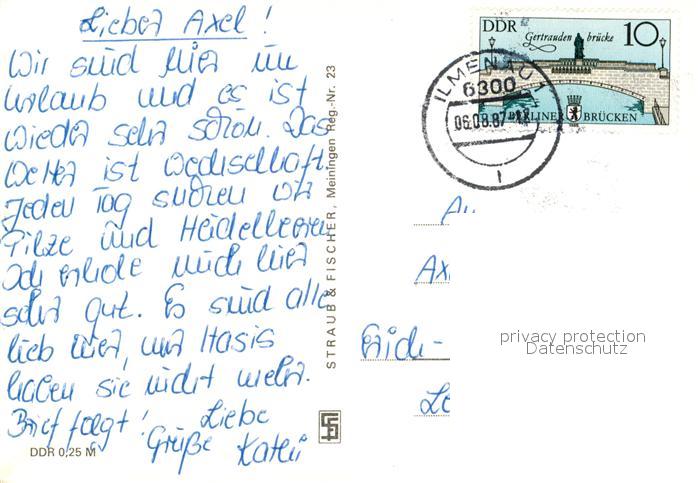 Lieber Axel!
Wir sind hier im
Urlaub und es ist
wieder sehr schön. Das
Wetter ist wechselhaft.
Jeden Tag suchen wir
Pilze und Heidelbeeren
Ich erhole mich hier
sehr gut. Es sind alle
lieb hier, nur Hasis
haben sie nicht mehr.
Brief folgt! Liebe
Grüße Kathi
DDR 0,25 M
STRAUB & FISCHER, Meiningen Reg.-Nr. 23
DDR
Gertrauden brücke
10
BERLINER BRÜCKEN
ILMENAU 1
6300
06.08.87
An
Ax
Erich-
Le
privacy protection
Datenschutz